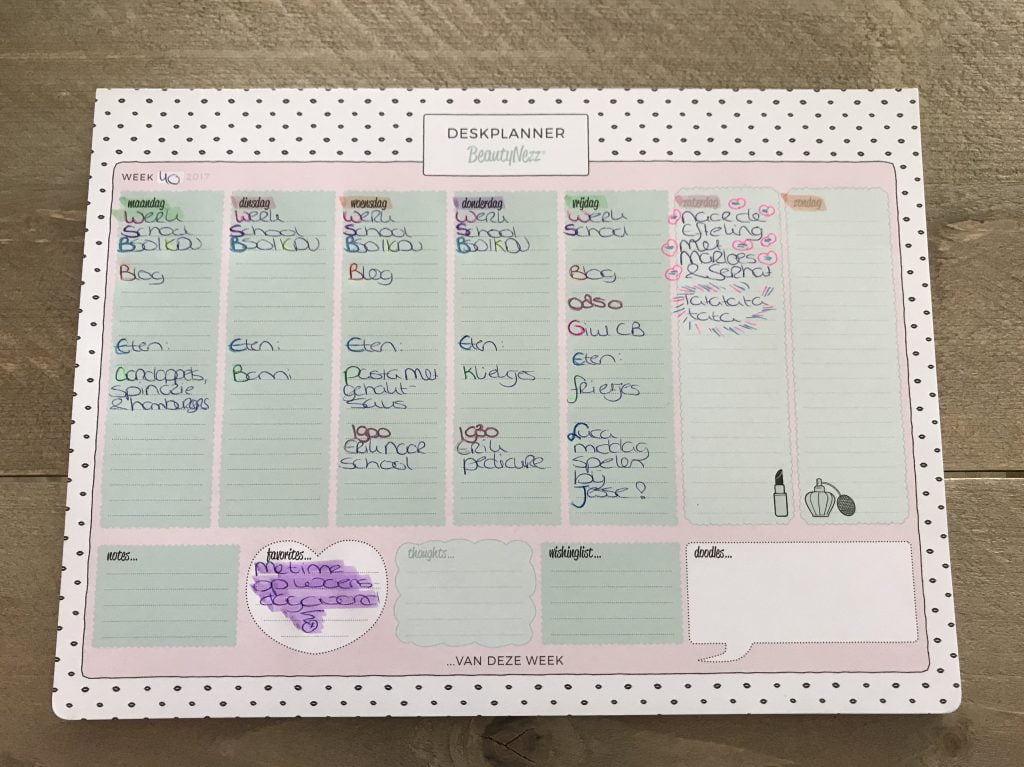 DESKPLANNER
BeautyNezz
WEEK 40 2017
maandag
Werk
School
BSO/KDV
Blog
Eten:
Aardappels,
spinazie
& hamburgers
dinsdag
Werk
School
BSO/KDV
Eten:
Bami
woensdag
Werk
School
BSO/KDV
Blog
Eten:
pasta met
gehakt-
saus
1900
Erik naar
school
donderdag
Werk
School
BSO/KDV
Eten:
Kliekjes
1930
Erik
pedicure
vrijdag
Werk
School
Blog
0850
CB
Eten:
frietjes
Luca
middag
spelen
bij
Jesse!
zaterdag
Naar de
Efteling
met
Marloes
& Serhat
Tatatata
tata
zondag
notes...
favorites...
Me time
op woens
dagavond
thoughts...
wishinglist...
doodles...
...VAN DEZE WEEK